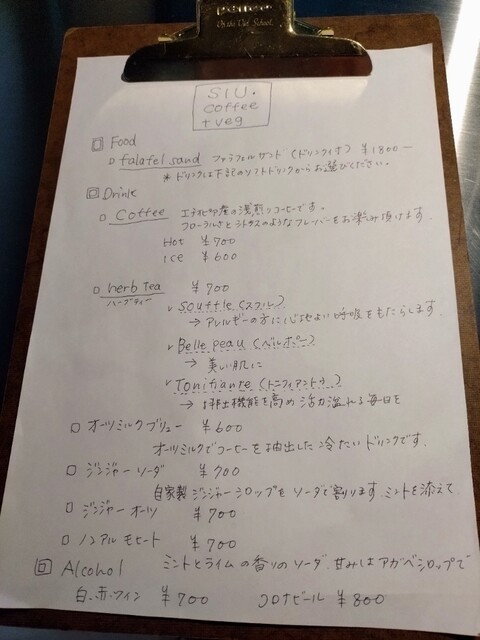 On the Old School.
S.I.U.
coffee
+veg
Food
falafel sand ファラフェルサンド(ドリンク付) ¥1800-
*ドリンクは下記のソフトドリンクからお選びください。
Drink
Coffee エチオピア産の浅煎りコーヒーです。
フローラルさとシトラスのようなフレーバーをお楽しみ頂けます。
Hot ¥700
ice ¥600
herb Tea ¥700
ハーブティー
souffle (スフル)
→ アレルギーの方に心地よい呼吸をもたらします。
Belle peau (ベルポー)
→ 美しい肌に
Tonifiante (トニフィアントゥ)
→ 排出機能を高め活力溢れる毎日を
オーツミルクブリュー ¥600
オーツミルクでコーヒーを抽出した冷たいドリンクです。
ジンジャーソーダ ¥700
自家製ジンジャーシロップをソーダで割ります ミントを添えて
ジンジャーオーツ ¥700
ノンアルモヒート ¥700
ミントとライムの香りのソーダ、甘みはアガベシロップで
Alcohol
白、赤、ワイン ¥700 コロナビール ¥800